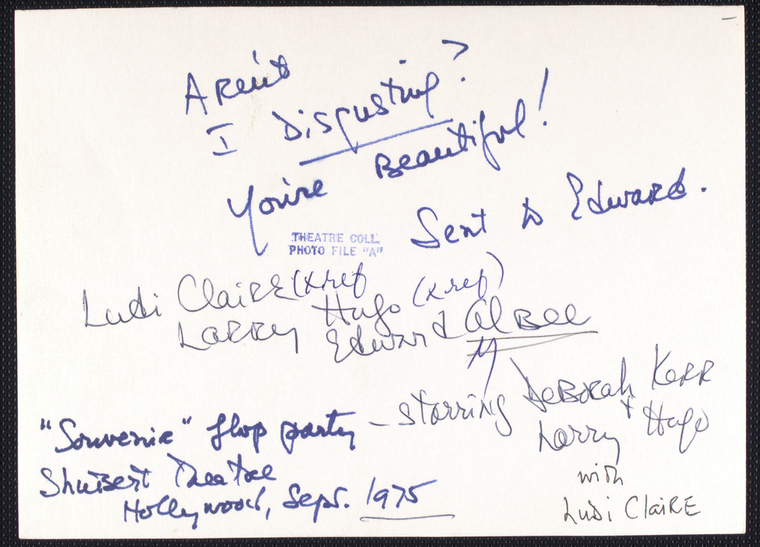 Aren't
I Disgusting?
You're Beautiful!
Sent to Edward.
THEATRE COLL.
PHOTO FILE "A"
Ludi Claire (xref)
Larry Hugo (xref)
Edward Albee
"Souvenir" flop party – starring Deborah Kerr
+ Larry Hugo
with
Ludi Claire
Shubert Theatre
Hollywood, Sept. 1975